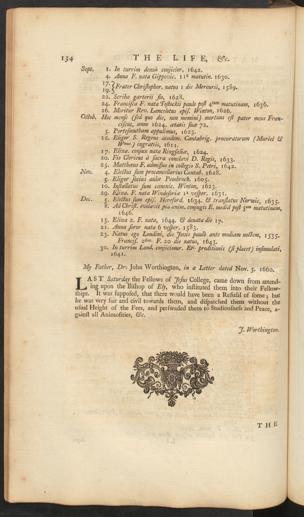 134 THE LIFE, &c.
Sept. 1. In turrim denuò conjicior, 1642.
4. Anna F. nata Gippovic. 11ª matutin. 1630.
17. } Frater Christopher. natus 1 die Mercurii, 1589.
19.
22. Scriba garterii fio, 1628.
24. Francisca F. nata paulò post matutinam, 1636.
26. Moritur Rev. Lancelotus episc. Winton, 1626.
Octob. Hoc mense (sed quo die, non memini) mortuus est pater meus Franciscus, anno 1624. ætatis suæ 72.
5. Portesmutham appulimus, 1623.
12. Eligor S. Regens academ. Cantabrig. procuratorum (Muriel &
) 1611.
17. Eliza. conjux nata Ringfeldiæ, 1604.
20. Fio Clericus à sacris concilii D. Regis, 1633.
25. Matthæus F. admissus in collegio S. Petri, 1642.
Nov. 4. Electus sum procancellarius Cantab. 1628.
5. Eligor socius aulæ Pembroch. 1605.
10. Installatus sum canonic. Winton, 1623.
29. Eliza. F. nata Windesoriæ 1ª vesper. 1631.
Dec. 5. Electus sum episc. Hereford, 1634. & translatus Norwic, 1635.
8. Ad Christ. evolavit pia anima conjugis E. mediâ post matutinam,
1646.
15. Eliza F. nata, 1644. & denata die 17.
21. Anna soror nata 6 vesper. 1583.
23. Natus ego Londini, die Jovis paulò ante mediam noctem, 1585.
Francisc. F. 20 die natus, 1643.
30. In turrim Land. conjicimur. Er proditionis (si placet) insimulati,
1641.
My Father, Dr. John Worthington, in a Letter dated Nov. 5. 1660.
LAST Saturday the Fellows of Jesus College, came down from attending upon the Bishop of Ely, who instituted them into their Fellowships. It was supposed, that there would have been a Refusal of some; but
he was very fair and civil towards them, and dispatched them without the
usual Height of the Fees, and perswaded them to Studiousness and Peace, against all Animosities, &c.
J. Worthington.
THE